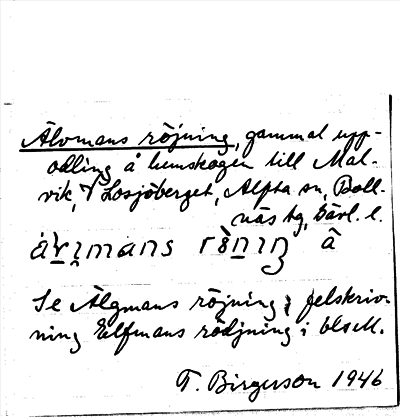 Älvmans röjning, gammal upp-
odling å hemskogen till Mal-
vik, V Losjöberget, Alfta sn, Boll-
näs tg, Gävl. l.
Se Älgmans röjning; felskriv-
ning Elfmans rödjning i bl&M.
T. Birgerson 1946